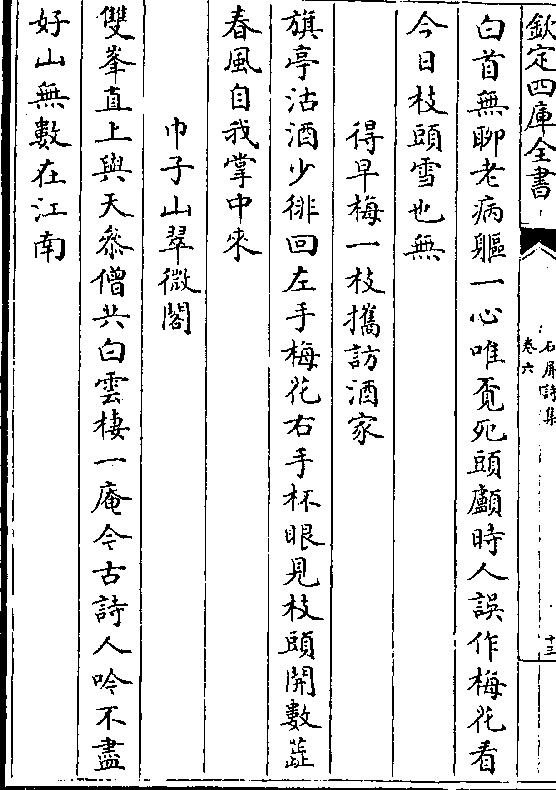 欽定四庫全書
石屏詩集
卷六
十三
白首無聊老病軀一心唯覔死頭顱時人誤作梅花看
今日枝頭雪也無
得早梅一枝攜訪酒家
旗亭沽酒少徘回左手梅花右手杯眼見枝頭開數蕋
春風自我掌中來
巾子山翠微閣
雙峯直上與天叅僧共白雲棲一庵今古詩人吟不盡
好山無數在江南